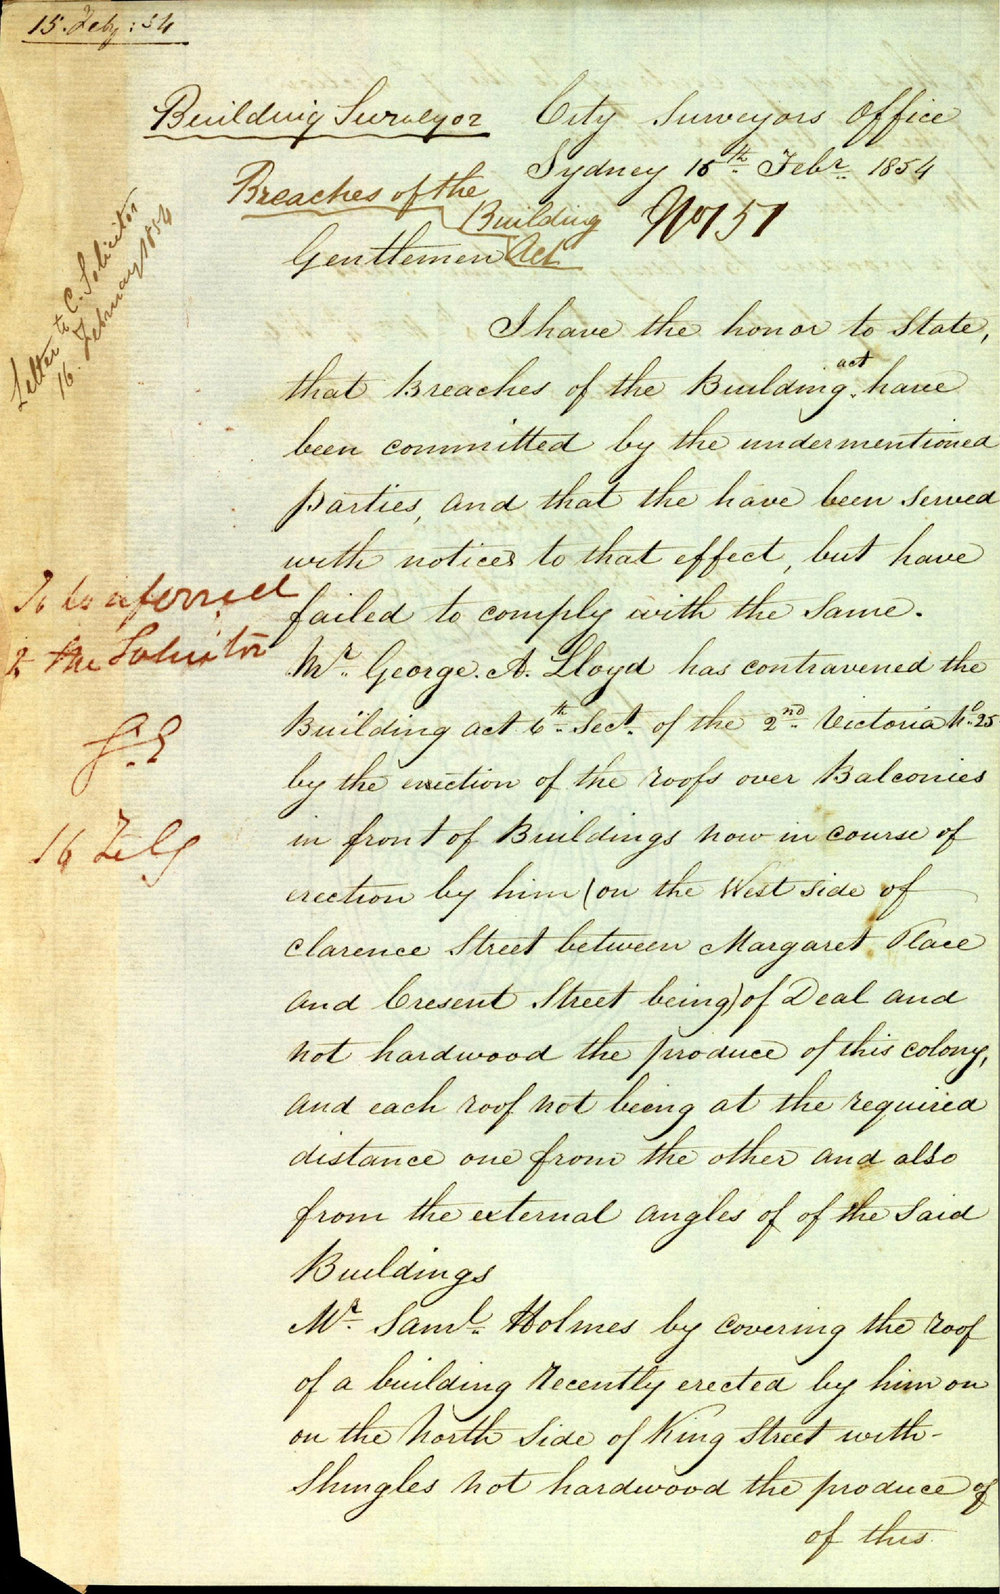 15. Feby: 54
Building Surveyor
City Surveyors Office
Sydney 15th Febr. 1854
Breaches of the
Building
Act
No 151
Letter to C. Solicitor
16. February 1854
Gentlemen
I have the honor to State,
that Breaches of the Building act have
been committed by the undermentioned
parties, and that the have been served
with notices to that effect, but have
failed to comply with the same.
To be referred
to the Solicitor
16 Feby
Mr. George. A. Lloyd has contravened the
Building act 6th Sect. of the 2nd Victoria No. 25
by the erection of the roofs over Balconies
in front of Buildings now in course of
erection by him (on the West side of
Clarence Street between Margaret Place
and Cresent Street being) of Deal and
not hardwood the produce of this colony,
and each roof not being at the required
distance one from the other and also
from the external angles of of the said
Buildings
Mr. Saml. Holmes by covering the roof
of a building recently erected by him on
on the North Side of King Street with
Shingles not hardwood the produce of
of this